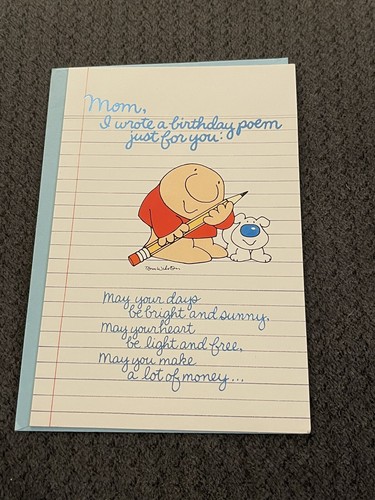 Mom,
I wrote a birthday poem
just for you:
Tom Wilson
May your days
be bright and sunny,
May your heart
be light and free,
May you make
a lot of money...